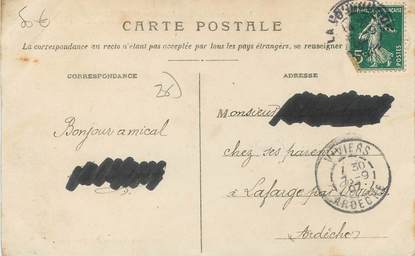 50€
CARTE POSTALE
La correspondance au recto n'étant pas acceptée par tous les pays étrangers, se renseigner
CORRESPONDANCE
ADRESSE
Bonjour amical
Monsieur
chez ses parents
à Lafarge par Viviers
Ardèche
VIVIERS
ARDECHE